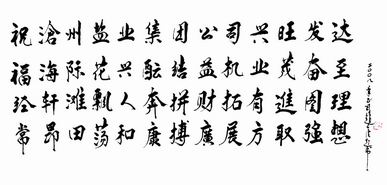 祝福经常
滄海轩昂
州际滩田
盐花飘荡
业兴人和
集酝奔康
团结拼搏
公益财廣
司机拓展
兴业有方
旺茂進取
发奋图强
达至理想
二〇〇八年